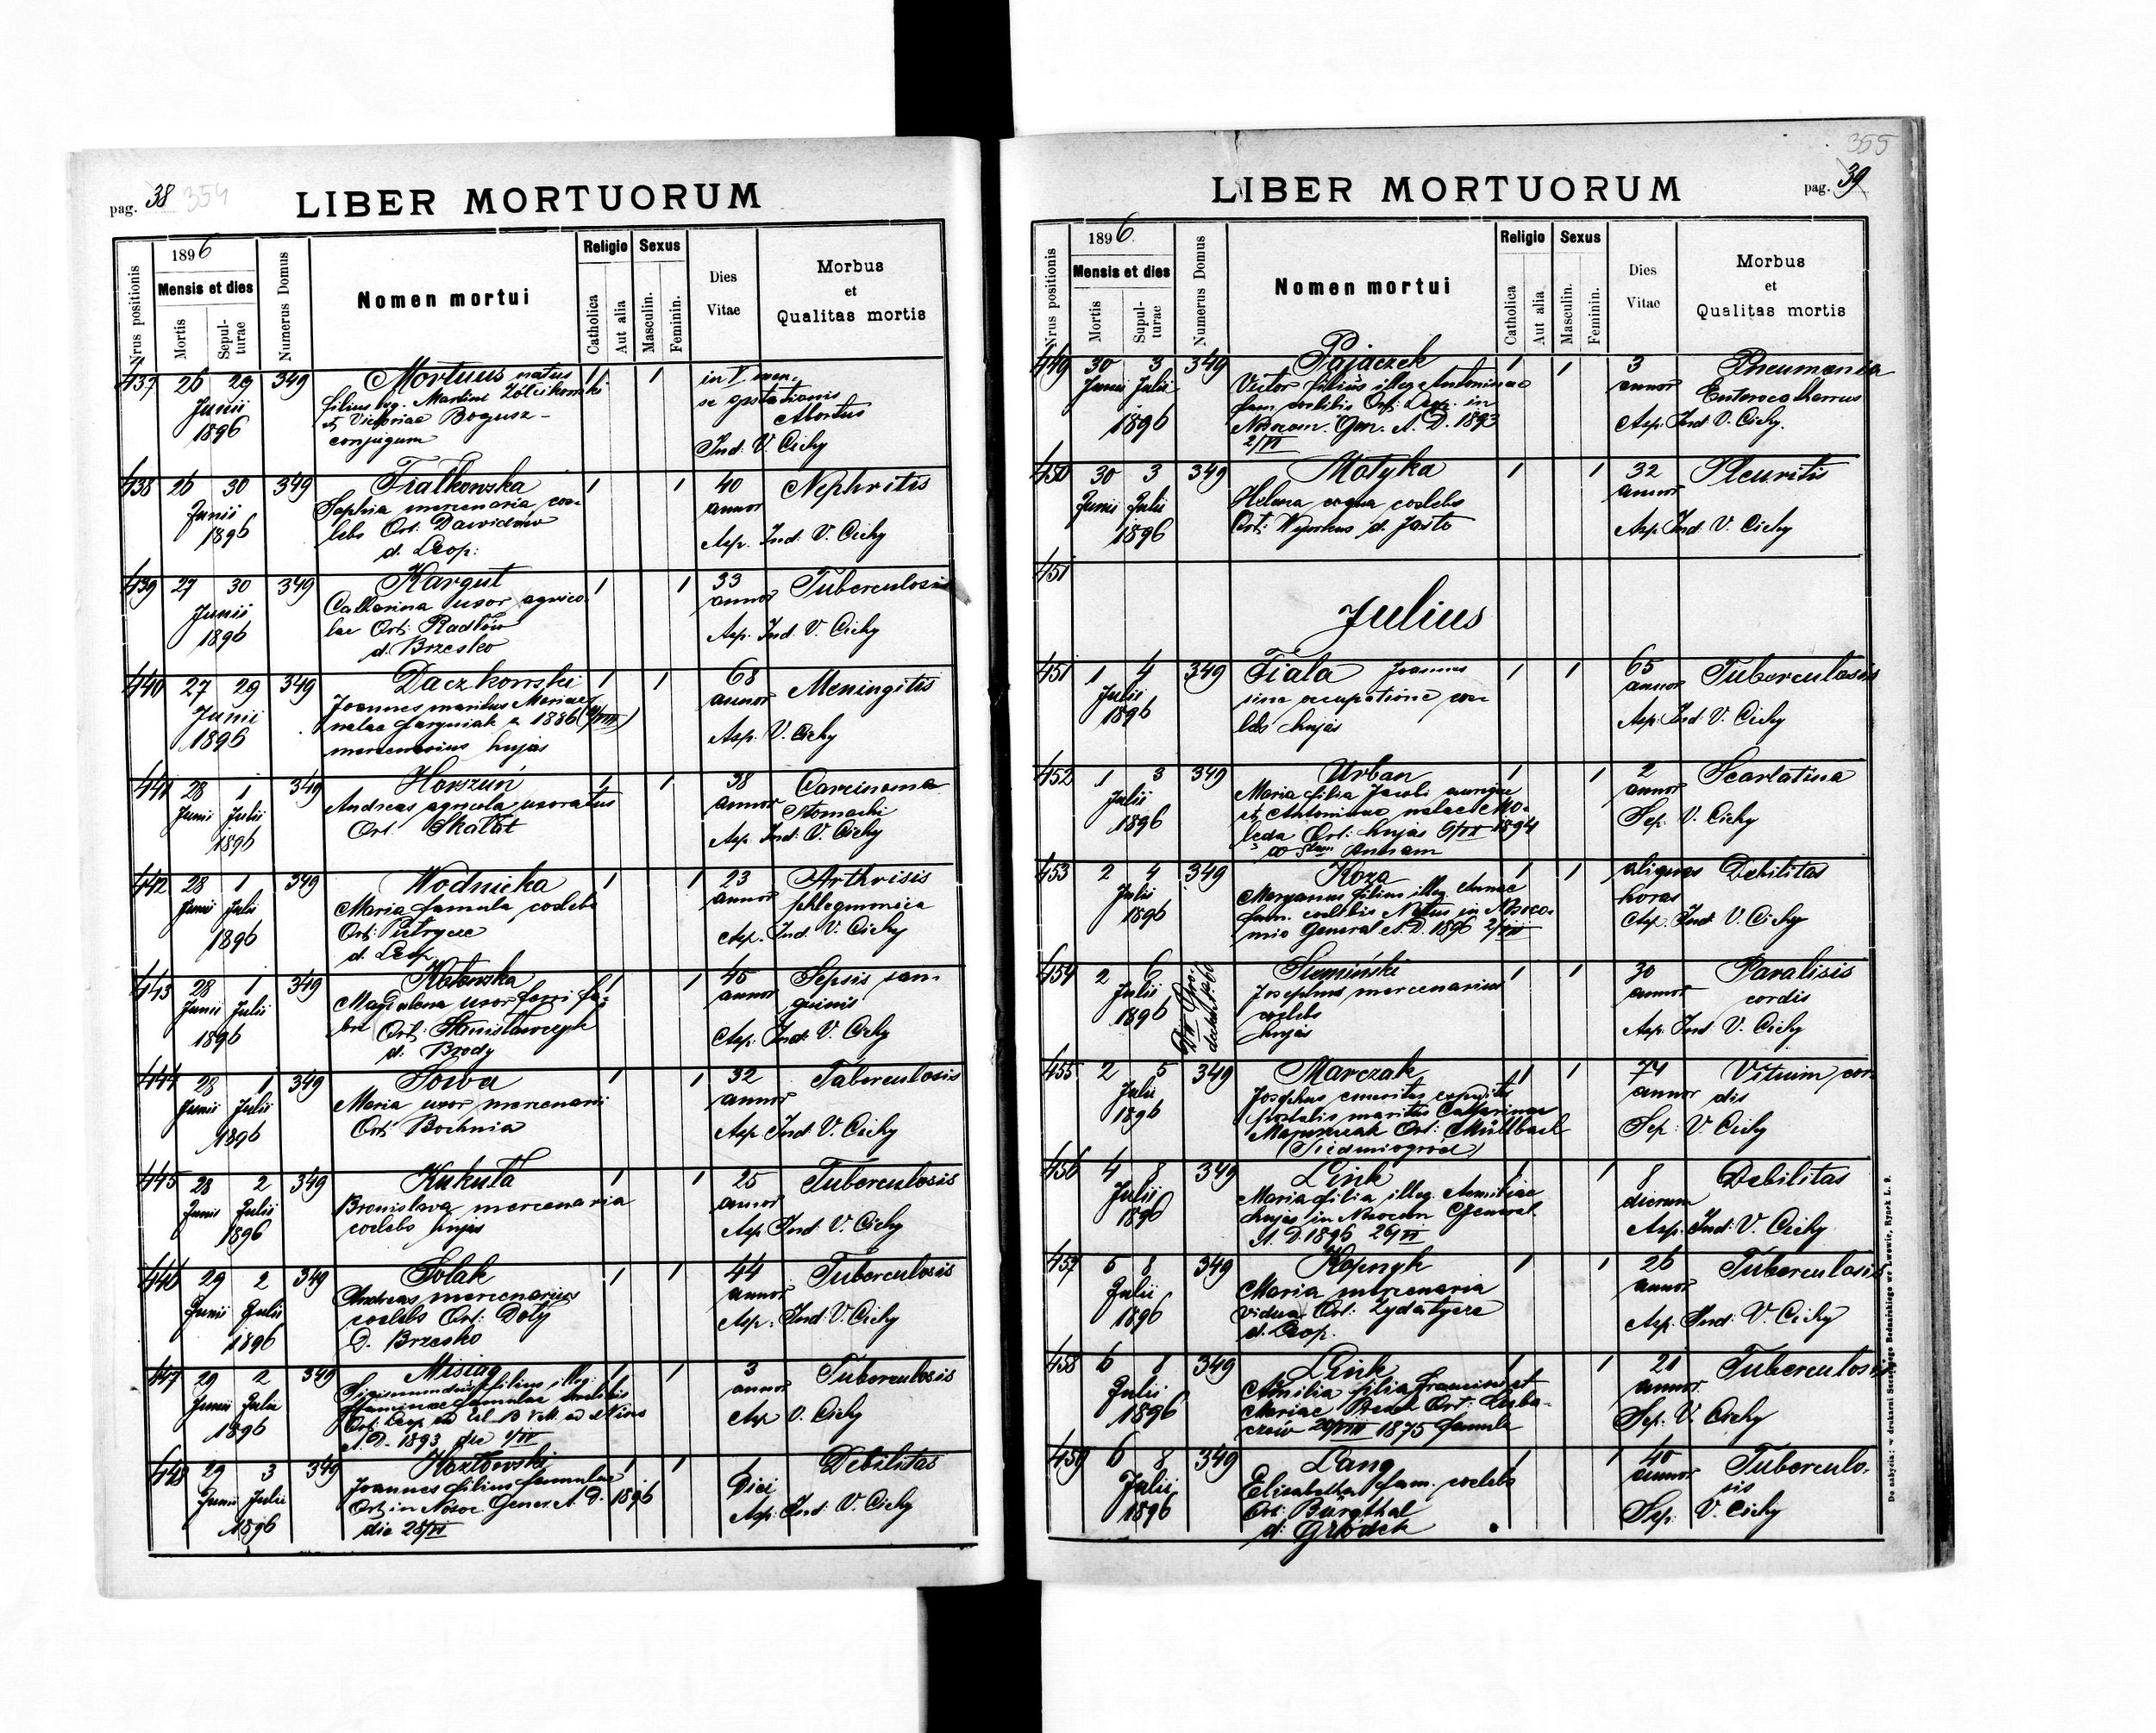 pag. 38 354
LIBER MORTUORUM
Nrus positionis
1896
Mensis et dies
Mortis
Sepulturae
Numerus Domus
Nomen mortui
Religio
Catholica
Aut alia
Sexus
Masculin.
Feminin.
Dies Vitae
Morbus et Qualitas mortis
437 26 29 Junii 1896 349
Mortuus natus
filius leg. Martini Żółcikowski
et Victoriae Bogusz
conjugum
in V men-
se gestationis
Abortus
Ind: V. Cichy
438 26 30 Junii 1896 349
Fiałkowska
Sophia mercenaria coe-
lebs Ort. Dawidów
d. Leop:
40 annor
Nephritis
Asp. Ind: V. Cichy
439 27 30 Junii 1896 349
Kargut
Catharina uxor agrico-
lae Ort: Radłów
d. Brzesko
33 annor
Tuberculosis
Asp. Ind: V. Cichy
440 27 29 Junii 1896 349
Daczkowski
Joannes maritus Mariae
natae 1886
mercenarius hujas
68 annor
Meningitis
Asp: V. Cichy
441 28 Junii 1 Julii 1896 349
Andreas agricola uxoratus
Ort: Skałat
38 annor
Carcinoma
Stomachi
Asp. Ind: V. Cichy
442 28 Junii 1 Julii 1896 349
Wodnicka
Maria famula coelebs
Ort: Pietrycze
d. Leop
23 annor
Arthrisis
phlegmonica
Asp. Ind: V. Cichy
443 28 Junii 1 Julii 1896 349
Magdalena uxor ferri fa-
bri Ort: Stanisławczyk
d: Brody
45 annor
Sepsis san-
guinis
Asp: Ind: V. Cichy
444 28 Junii 1 Julii 1896 349
Sowa
Maria uxor mercenarii
Ort: Bochnia
32 annor
Tuberculosis
Asp Ind: V. Cichy
445 28 Junii 2 Julii 1896 349
Kukuła
Bronislava mercenaria
coelebs hujas
25 annor
Tuberculosis
Asp Ind: V. Cichy
446 29 Junii 2 Julii 1896 349
Solak
Andreas mercenarius
coelebs Ort: Doły
D. Brzesko
44 annor
Tuberculosis
Asp. Ind: V. Cichy
447 29 Junii 2 Julii 1896 349
Misiag
Sigismundus filius illeg.
famulae coelibis
Ort: Leop ad B V M. ad Nives
A. D. 1893 die 1/IV
3 annor
Tuberculosis
Asp V. Cichy
448 29 Junii 3 Julii 1896 349
Kozłowski
Joannes filius famulae
Ort. in Nosoc. Gener. A. D. 1896
die 28/VI
1 Diei
Debilitas
Asp: Ind: V. Cichy
355
pag. 39
LIBER MORTUORUM
Nrus positionis
1896
Mensis et dies
Mortis
Sepulturae
Numerus Domus
Nomen mortui
Religio
Catholica
Aut alia
Sexus
Masculin.
Feminin.
Dies Vitae
Morbus et Qualitas mortis
449 30 Junii 3 Julii 1896 349
Pajaczek
Victor filius illeg Antoninae
fam. coelibis Ort: Leop: in
Nosocom. Gen. A. D. 1893
2/VI
3 annor
Pneumonia
Enterocatharrus
Asp: Ind V. Cichy.
450 30 Junii 3 Julii 1896 349
Motyka
Helena coqua coelebs
Ort: d. Jasło
32 annor
Pleuritis
Asp. Ind V. Cichy
451
Julius
451 1 4 Julii 1896 349
Fiala Joannes
sine occupatione coe
lebs hujas
65 annor
Tuberculosis
Asp: Ind: V. Cichy
452 1 3 Julii 1896 349
Urban
Maria filia Jacobi aurigae
et Antoninae natae Mo-
leda Ort: hujas 1894
ad Stam Annam
2 annor
Scarlatina
Sep: V. Cichy
453 2 4 Julii 1896 349
Koza
Maryanus filius illeg Annae
fam. coelibis Natus in Nosoco-
mio General A. D. 1896 2/VII
aliquas horas
Debilitas
Asp. Ind: V. Cichy
454 2 6 Julii 1896
Siemiński
Josephus mercenarius
coelebs
hujas
30 annor
Paralisis
cordis
Asp. Ind V. Cichy
455 2 5 Julii 1896 349
Marczak
Josephus emeritus expeditor
postalis maritus Catharinae
Ort: Mühlbach
(Siedmiogród)
74 annor
Vitium cor-
dis
Sep: V. Cichy
456 4 8 Julii 1896 349
Link
Maria filia illeg. Aemiliae
hujas in Nosocom General.
A. D. 1896 26/VI
8 dierum
Debilitas
Asp. Ind: V. Cichy
457 5 8 Julii 1896 349
Kopczyk
Maria mercenaria
vidua Ort: Żydatycze
d. Leop.
26 annor
Tuberculosis
Asp. Ind: V. Cichy
458 6 8 Julii 1896 349
Link
Amilia filia Francisci et
Mariae Ort: Luba-
czów 29/VIII 1875 famula
21 annor.
Tuberculosis
Sep: V. Cichy
459 6 8 Julii 1896 349
Lang
Elisabetha fam. coelebs
Ort: Burgthal
d: Gródek
40 annor
Tuberculo-
sis
Sep: V. Cichy
De nabycia: w drukarni Szczęsnego Bednarskiego we Lwowie, Rynek L. 9.